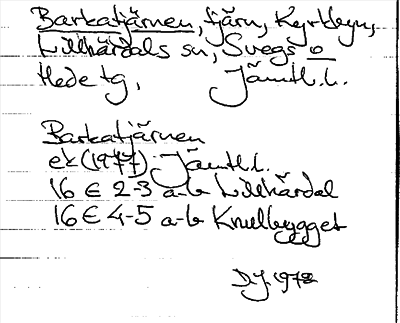 Barkatjärnen, tjärn, Kyrkbyn,
Lillhärdals sn, Svegs o
Hede tg, Jämtl.l.
Barkatjärnen
ek (1977) Jämtl.l.
16 E 2-3 a-b Lillhärdal
16 E 4-5 a-b Knullbygget
DJ 1978